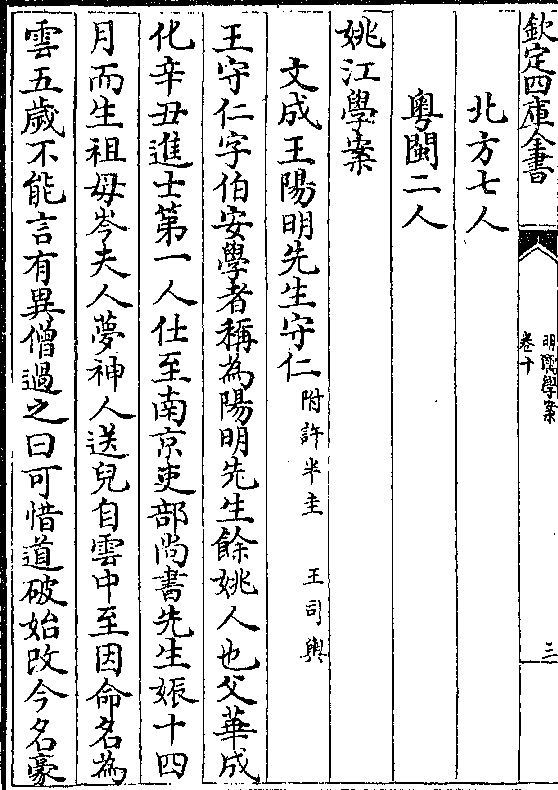 欽定四庫全書
明儒學案
卷十
三
北方七人
粵閩二人
姚江學案
文成王陽明先生守仁 附許半圭 王司輿
王守仁字伯安學者稱為陽明先生餘姚人也父華成
化辛丑進士第一人仕至南京吏部尚書先生娠十四
月而生祖母岑夫人夢神人送兒自雲中至因命名為
雲五歲不能言有異僧過之曰可惜道破始改今名豪